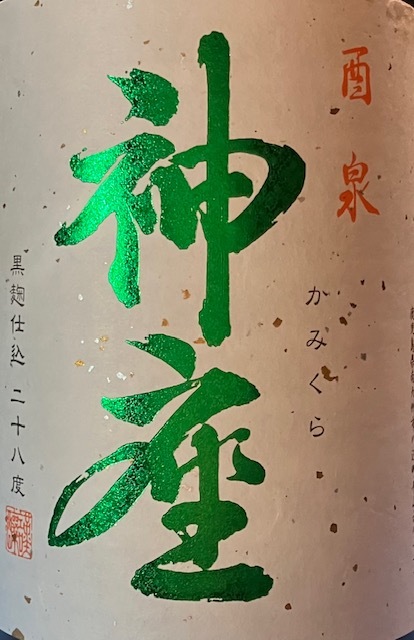 酉泉
かみくら
神座
黒麹仕込 二十八度